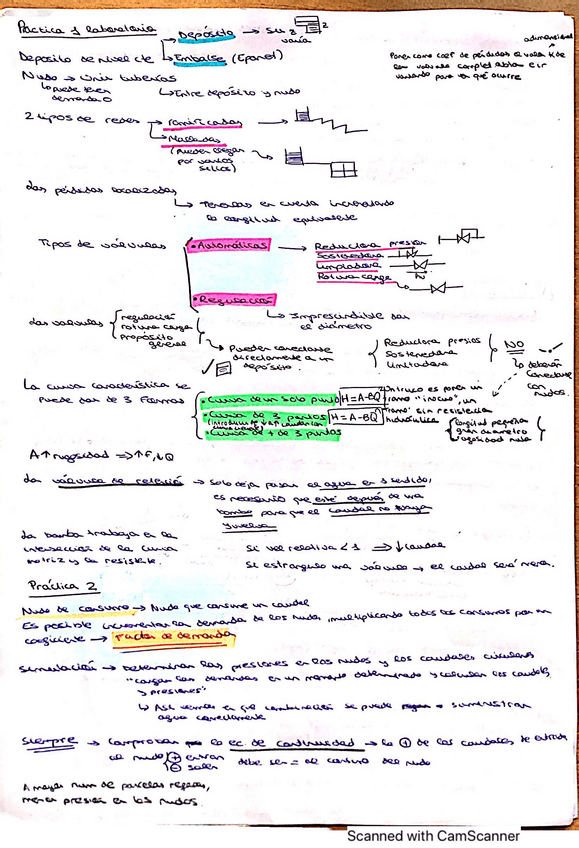 Práctica 1 laboratorio → Depósito → su z varía
Depósito de nivel cte → Embalse (Epanet)
adimensional
Poner como coef de pérdidas el valor K de
una válvula completa abierta e ir
variando para ver qué ocurre
Nudo → Unir tuberías
↳ puede tener demanda 0
↳ Entre depósito y nudo
2 tipos de redes → Ramificadas →
↳ Malladas
(pueden llegar
por varios
sitios)
Las pérdidas localizadas
↳ Tenerlas en cuenta incrementando
la longitud equivalente
Tipos de válvulas
• Automáticas → Reductora presión
Sostenedora
Limitadora
Rotura carga
• Regulación
↳ Imprescindible dar
el diámetro
Las válvulas { regulación
rotura carga
propósito
general
→ Pueden conectarse
directamente a un
depósito.
{ Reductora presión
Sostenedora
Limitadora
→ NO
↳ deberán
conectarse
con
nudos.
La curva característica se
puede dar de 3 formas
• Curva de un solo punto H=A-BQ²
• Curva de 3 puntos H=A-BQ
• Curva de + de 3 puntos
Un truco es poner un
tramo "inocuo", un
tramo sin resistencia
hidráulica
{ longitud pequeña
gran diámetro
rugosidad nula
A ↑ rugosidad ⇒ ↑f, ↓Q
La válvula de retención → solo deja pasar el agua en 1 sentido,
es necesario que esté después de una
bomba para que el caudal no
vuelva
La bomba trabaja en la
intersección de la curva
motriz y la resistente.
Si vel relativa < 1 ⇒ ↓ caudal
Si estrangulo una válvula → el caudal será menor.
Práctica 2
Nudo de consumo → Nudo que consume un caudal
Es posible incrementar la demanda de los nudos, multiplicando todos los consumos por un
coeficiente → Factor de demanda
Simulación → Determinar las presiones en los nudos y los caudales circulantes
"cargar las demandas en un momento determinado y calcular los caudales
y presiones"
↳ Así vemos en qué combinación se puede suministrar
agua correctamente
Siempre → Comprobar la ec. de continuidad → la ⊕ de los caudales de entrada
al nudo ⊕ entran
⊖ salen
debe ser = al consumo del nudo
A mayor num de parcelas regadas,
menor presión en los nudos.
Scanned with CamScanner